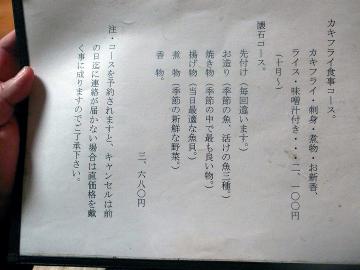 カキフライ食事コース。
カキフライ・刺身・煮物・お新香、
(十月〜)
ライス・味噌汁付き・・・二、一〇〇円
懐石コース。
先付け(毎回違います。)
お造り(季節の魚、活けの魚三種。)
焼き物(季節の中で最も良い物。)
揚げ物(当日最適な魚貝。)
煮 物(季節の新鮮な野菜。)
香 物。
三、六八〇円
注・コースを予約されますと、キャンセルは前
の日迄に連絡が届かない場合は直価格を戴
く事に成りますのでご了承下さい。